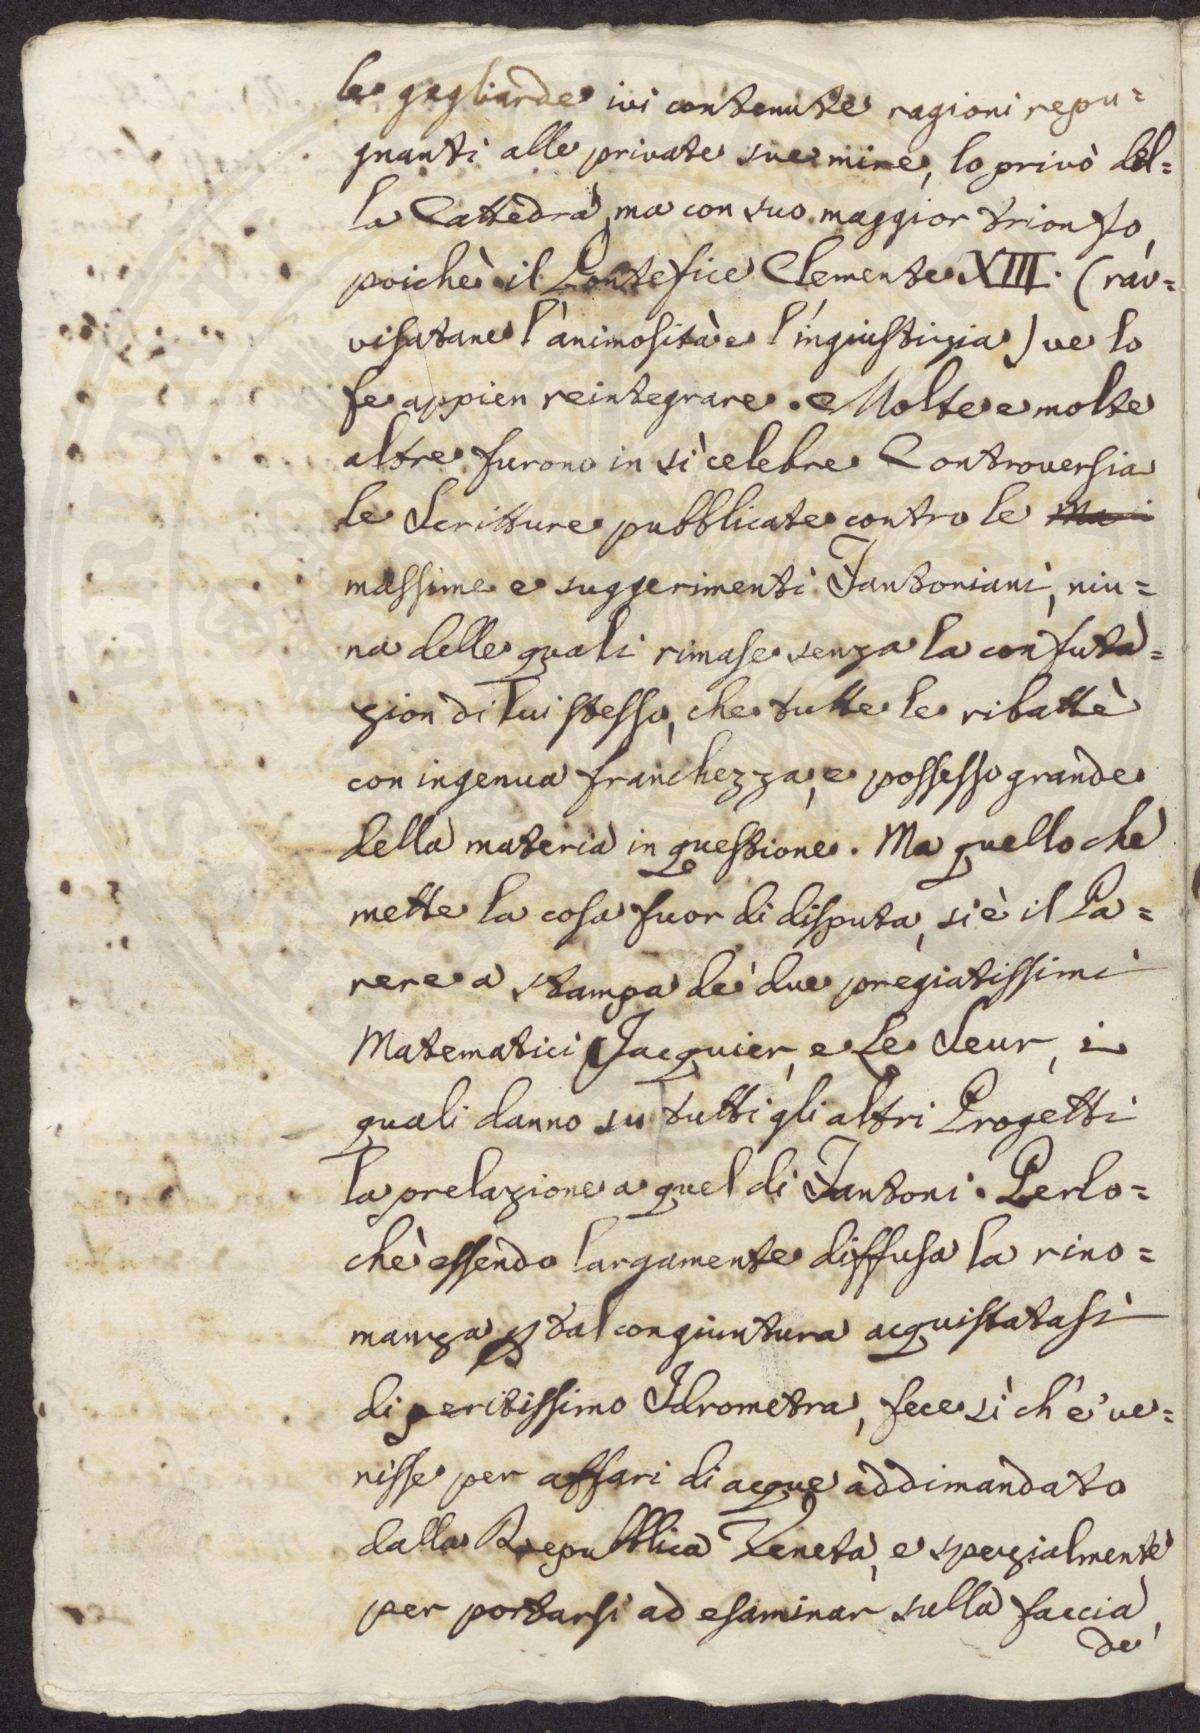 le gagliarde ivi contenute ragioni repu=
gnanti alle private sue mire, lo privò del=
la Cattedra, ma con suo maggior trionfo,
poichè il Pontefice Clemente XIII. (rav=
visatane l'animosità e l'ingiustizia) ve lo
fe appien reintegrare. Molte e molte
altre furono in sì celebre Controversia
le Scritture pubblicate contro le
massime e suggerimenti Fantoniani, niu=
na delle quali rimase senza la confuta=
zion di lui stesso, che tutte le ribattè
con ingenua franchezza, e possesso grande
della materia in questione. Ma quello che
mette la cosa fuor di disputa, si è il Pa=
rere a stampa de' due pregiatissimi
Matematici Jacquier, e Le Seur, i
quali danno su tutti gli altri Progetti
la prelazione a quel di Fantoni. Perlo=
chè essendo largamente diffusa la rino=
manza p tal congiuntura acquistatasi
di peritissimo Idrometra, fece sì ch'e' ve=
nisse per affari di acque addimandato
dalla Repubblica Veneta, e spezialmente
per portarsi ad esaminar sulla faccia
de'